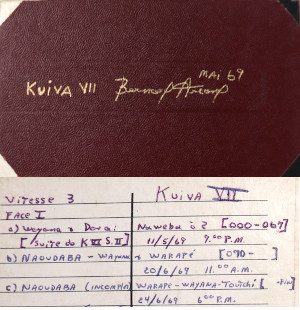 KUIVA VII Bernard Arcand
MAI 69
Vitesse 3 KUIVA VII
FACE I
a) Wayana & Dorai Naweba ö 2 [000-069]
[Suite de K VI S.II] 11/5/69 7:00 P.M.
b) NAOUDABA - Wayana & WARAPÉ [070-]
20/6/69 11.00 A.M.
c) NAOUDABA WARAPE-WAYANA-Touichi [-FIN]
24/6/69 6:00 P.M.